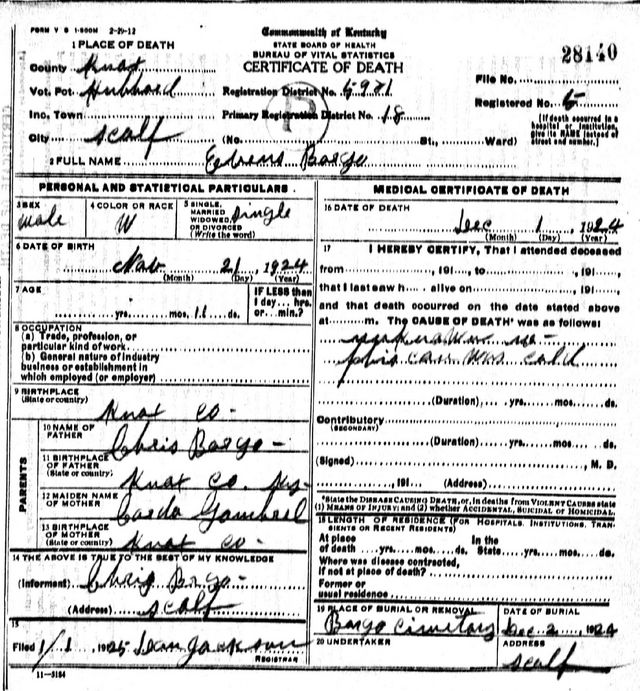 FORM V S 1-500M 2-29-12
Commonwealth of Kentucky
STATE BOARD OF HEALTH
BUREAU OF VITAL STATISTICS
CERTIFICATE OF DEATH
28140
1 PLACE OF DEATH
County Knox
Vot. Pct. Hubbard
Inc. Town
City Scalf
Registration District No. 5981
Primary Registration District No. 18
(No. St., Ward)
File No.
Registered No. 5
[If death occurred in a hospital or institution, give its NAME instead of street and number.]
2 FULL NAME Bargo
PERSONAL AND STATISTICAL PARTICULARS.
3 SEX male
4 COLOR OR RACE W
5 SINGLE, MARRIED WIDOWED, OR DIVORCED (Write the word) Single
6 DATE OF BIRTH
Nov 21, 1924
(Month) (Day) (Year)
7 AGE
yrs. mos. 11 ds.
IF LESS than 1 day.... hrs. or... min.?
8 OCCUPATION
(a) Trade, profession, or
particular kind of work
(b) General nature of industry
business or establishment in
which employed (or employer)
9 BIRTHPLACE
(State or country)
Knox Co -
PARENTS
10 NAME OF FATHER
Chris Bargo -
11 BIRTHPLACE OF FATHER
(State or country)
Knox Co. Ky-
12 MAIDEN NAME OF MOTHER
13 BIRTHPLACE OF MOTHER
(State or country)
Knox Co -
14 THE ABOVE IS TRUE TO THE BEST OF MY KNOWLEDGE
(Informant) Chris Bargo -
(Address) Scalf
15
Filed 1/1 1925 Jackson
REGISTRAR
11-3184
MEDICAL CERTIFICATE OF DEATH
16 DATE OF DEATH
Dec 1, 1924
(Month) (Day) (Year)
17 I HEREBY CERTIFY, That I attended deceased
from , 191 , to , 191 ,
that I last saw h alive on , 191 ,
and that death occurred on the date stated above
at m. The CAUSE OF DEATH* was as follows:
unknown no -
phisican was cald
(Duration) yrs. mos. ds.
Contributory
(SECONDARY)
(Duration) yrs. mos. ds.
(Signed) , M. D.
, 191 (Address)
*State the DISEASE CAUSING DEATH, or, in deaths from VIOLENT CAUSES state
(1) MEANS OF INJURY; and (2) whether ACCIDENTAL, SUICIDAL OF HOMICIDAL.
18 LENGTH OF RESIDENCE (FOR HOSPITALS, INSTITUTIONS, TRANSIENTS OR RECENT RESIDENTS)
At place of death yrs. mos. ds. In the State yrs. mos. ds.
Where was disease contracted,
if not at place of death?
Former or
usual residence
19 PLACE OF BURIAL OR REMOVAL
Bargo Cimetary
DATE OF BURIAL
Dec 2, 1924
20 UNDERTAKER
ADDRESS
Scalf